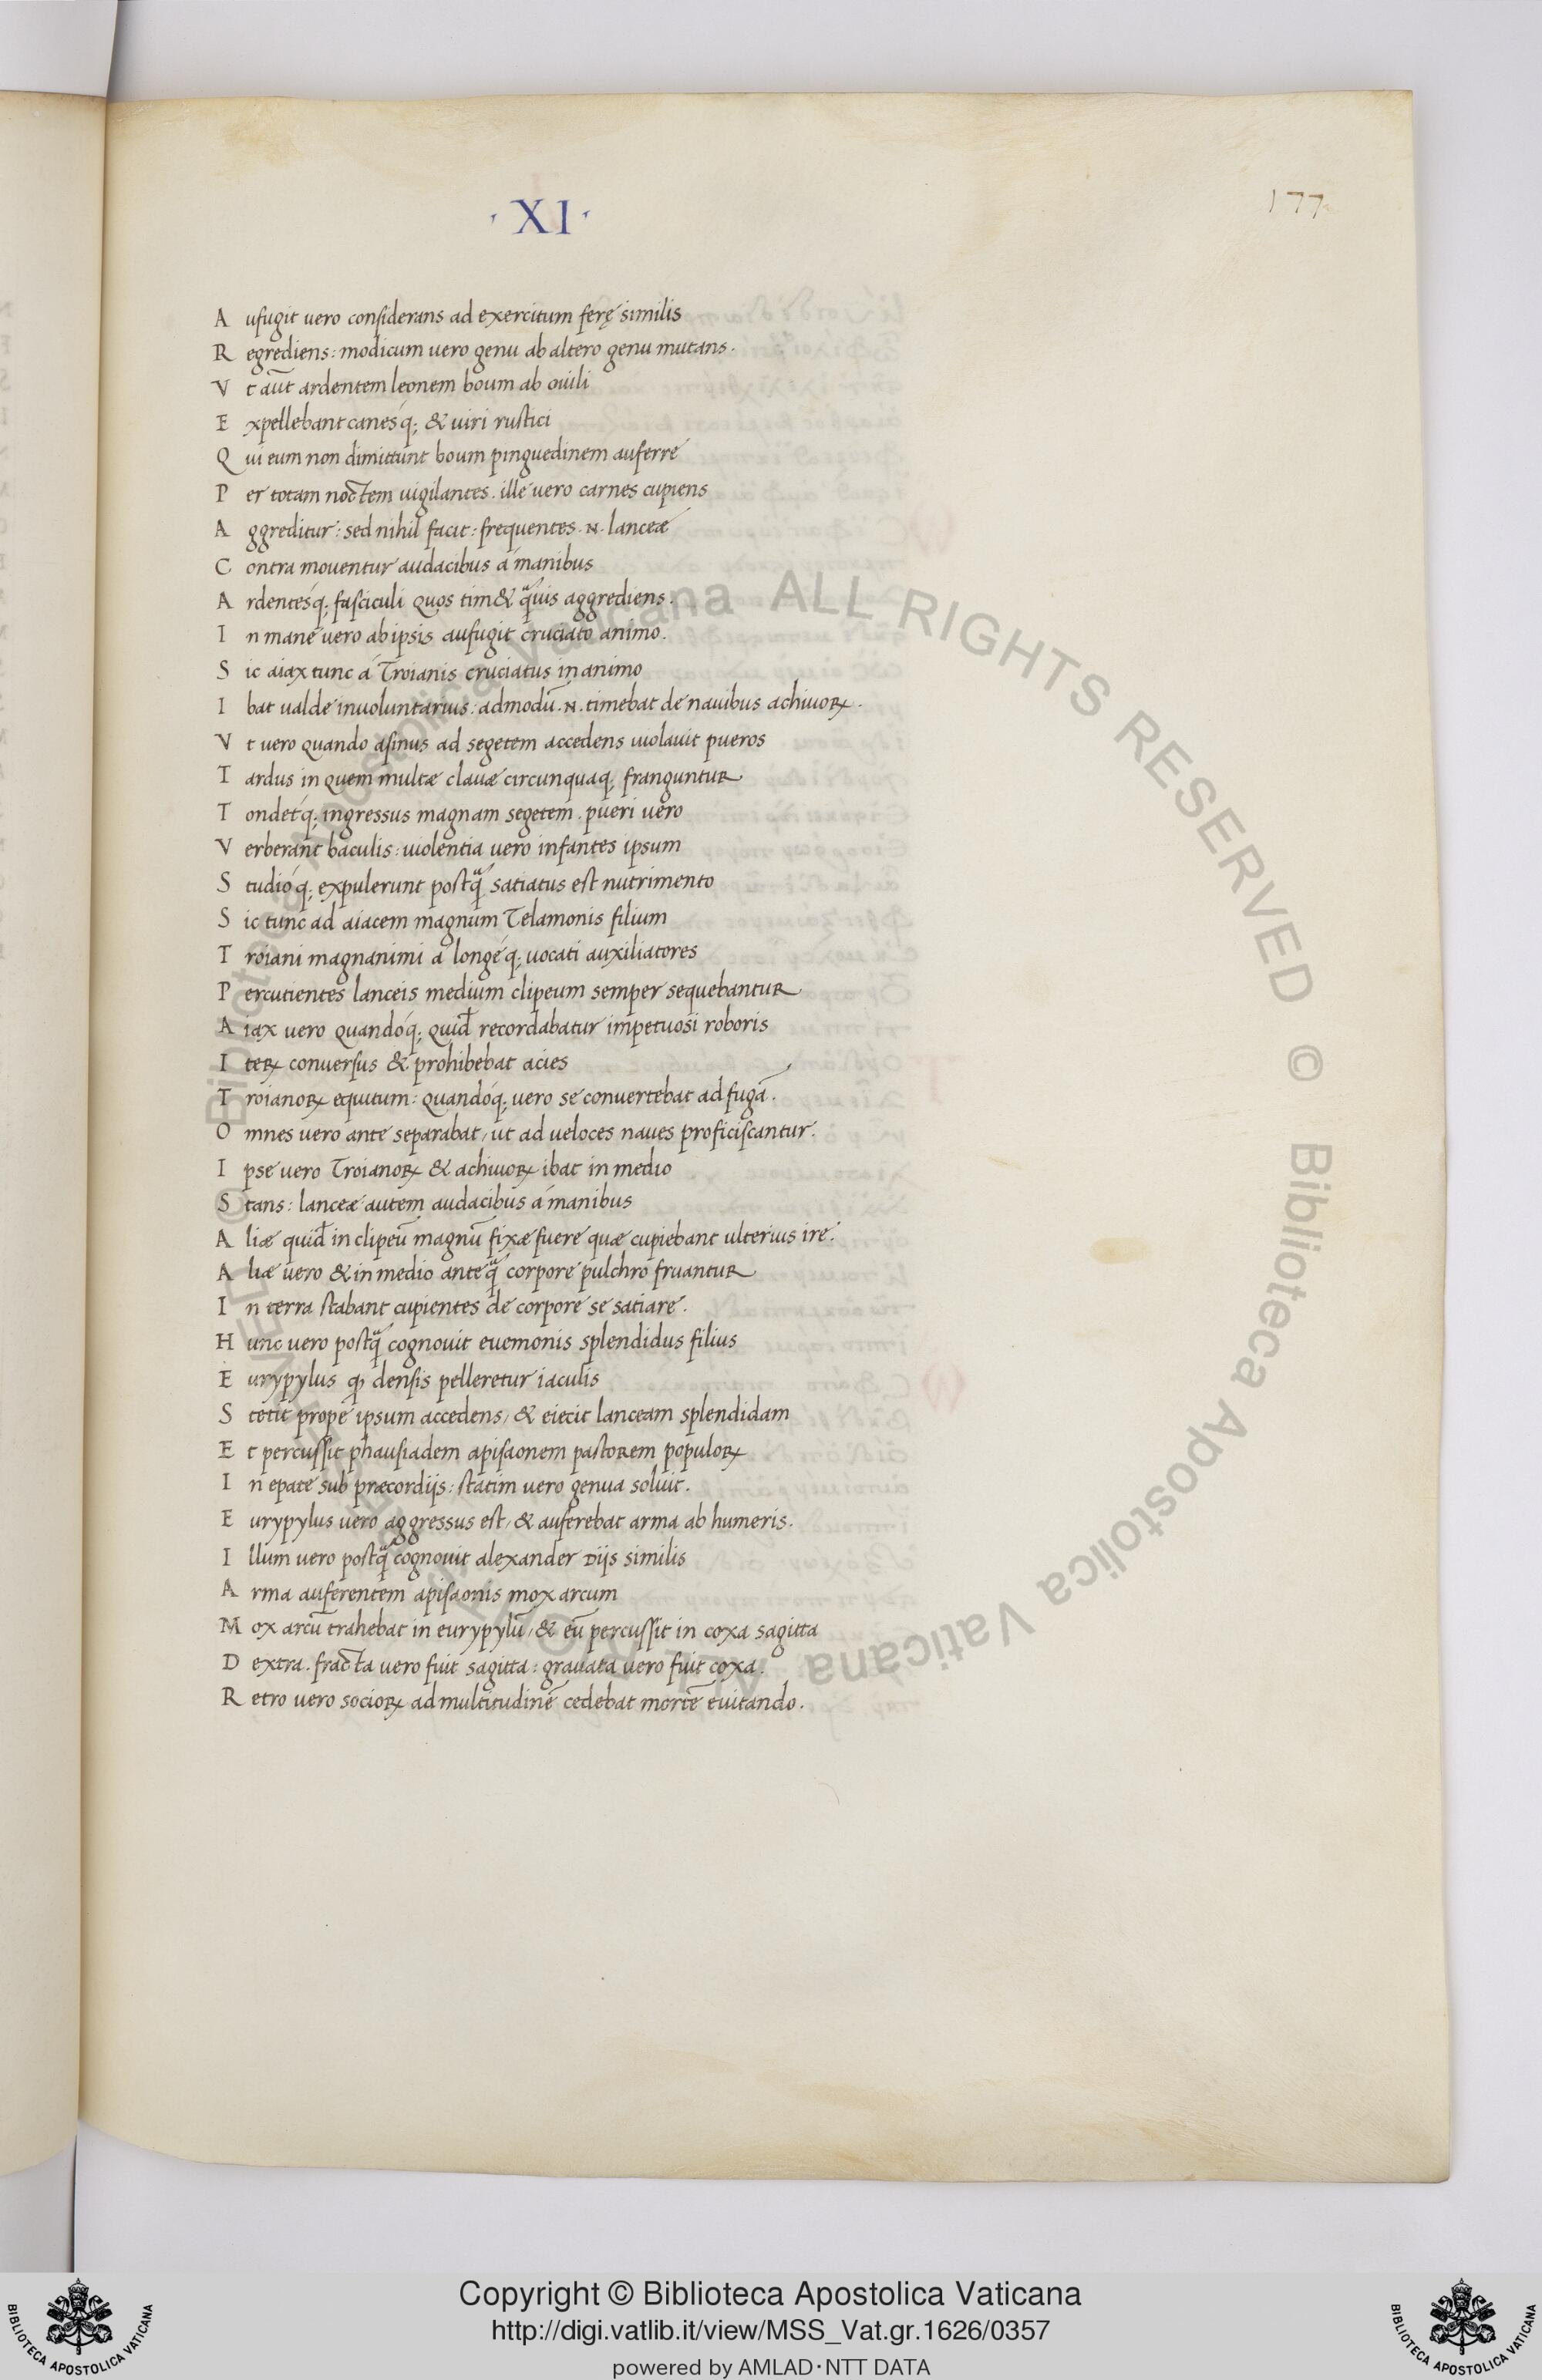 · XI ·
177
A ufugit uero considerans ad exercitum ferę similis
R egrediens: modicum uero genu ab altero genu mutans.
V t aut̃ ardentem leonem boum ab ouili
E xpellebant canesq; & uiri rustici
Q ui eum non dimittunt boum pinguedinem auferre
P er totam noctem uigilantes. ille uero carnes cupiens
A ggreditur: sed nihil facit: frequentes .N. lanceæ
C ontra mouentur audacibus á manibus
A rdentesq; fasciculi quos tim& q̃uis aggrediens.
I n mane uero ab ipsis aufugit cruciato animo.
S ic aiax tunc á Troianis cruciatus in animo
I bat ualde inuoluntarius: admodũ .N. timebat de nauibus achiuoꝝ.
V t uero quando asinus ad segetem accedens uiolauit pueros
T ardus in quem multæ clauæ circunquaq; franguntur
T ondetq; ingressus magnam segetem. pueri uero
V erberant baculis: uiolentia uero infantes ipsum
S tudioq; expulerunt postq̃ satiatus est nutrimento
S ic tunc ad aiacem magnum Telamonis filium
T roiani magnanimi a longeq; uocati auxiliatores
P ercutientes lanceis medium clipeum semper sequebantur
A iax uero quandoq; quid̃ recordabatur impetuosi roboris
I teꝝ conuersus & prohibebat acies
T roianoꝝ equitum: quandoq; uero se conuertebat ad fugã.
O mnes uero ante separabat, ut ad ueloces naues proficiscantur.
I pse uero Troianoꝝ & achiuoꝝ ibat in medio
S tans: lanceæ autem audacibus á manibus
A liæ quid̃ in clipeũ magnũ fixæ fuere quæ cupiebant ulterius ire.
A liæ uero & in medio anteq̃ corpore pulchro fruantur
I n terra stabant cupientes de corpore se satiare.
H unc uero postq̃ cognouit euemonis splendidus filius
E urypylus ꝙ densis pelleretur iaculis
S tetit prope ipsum accedens, & eiecit lanceam splendidam
E t percussit phausiadem apisaonem pastorem populoꝝ
I n epate sub præcordijs: statim uero genua soluit.
E urypylus uero aggressus est, & auferebat arma ab humeris.
I llum uero postq̃ cognouit alexander Dijs similis
A rma auferentem apisaonis mox arcum
M ox arcũ trahebat in eurypylũ, & eũ percussit in coxa sagitta
D extra. fracta uero fuit sagitta: grauata uero fuit coxa.
R etro uero socioꝝ ad multitudinẽ cedebat mortẽ euitando.
Copyright © Biblioteca Apostolica Vaticana
http://digi.vatlib.it/view/MSS_Vat.gr.1626/0357
powered by AMLAD·NTT DATA